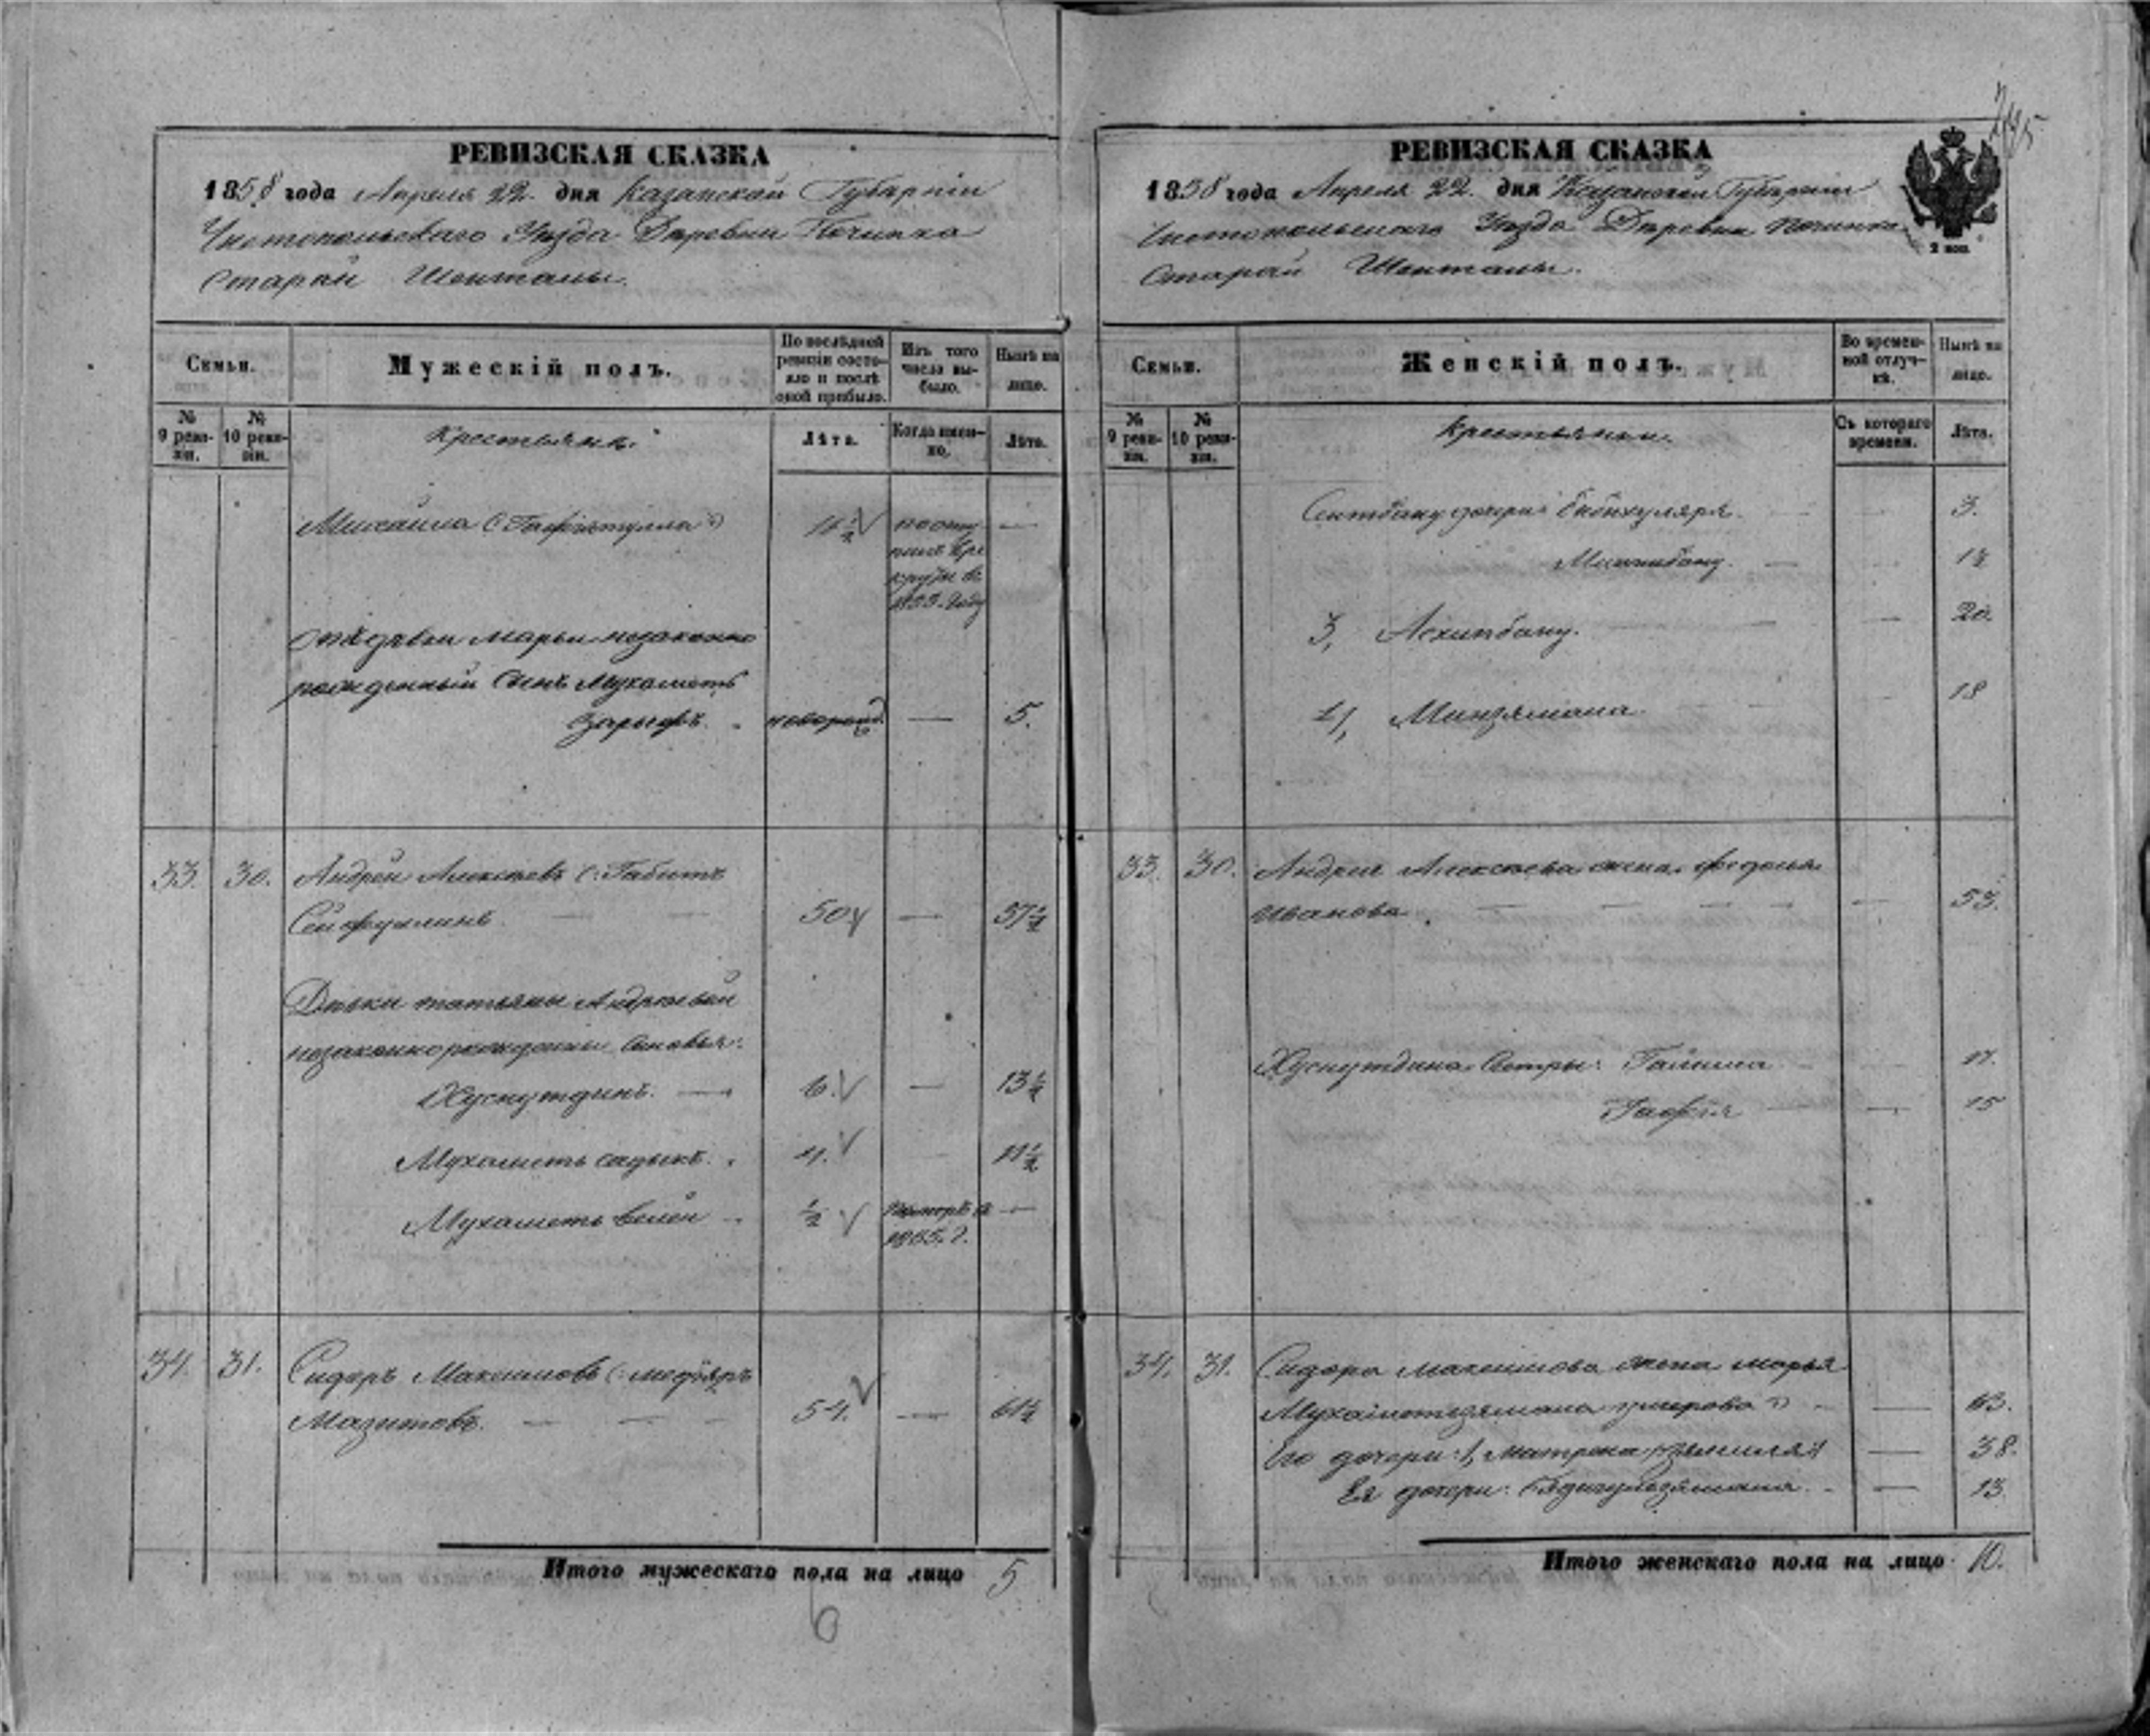 245
РЕВИЗСКАЯ СКАЗКА
1858 года Апреля 22. дня Казанской Губерніи
Чистопольскаго Уезда Деревни Починка
Старой Шентали.
Семьи.
Мужескій полъ.
По послѣдней ревизіи состояло и послѣ оной прибыло.
Изъ того числа выбыло.
Нынѣ на лицо.
№ 9 ревизіи.
№ 10 ревизіи.
Крестьяне.
Лѣта.
Когда именно.
Лѣта.
Михайла (:Гафіятулла:)
посту
въ
1855. году
Марьи незаконно
рожденный сынъ Мухаметь
Зарыфъ.
новорожд.
—
5.
33.
30.
Андрей Алексеевъ (:Габитъ
Сейфулинъ.
50
—
57½
Девки татьяны Андреевой
незаконнорожденны сыновья:
Хуснутдинъ. —
6.
—
13½
Мухаметь садыкъ.
4.
—
11½
Мухаметь Велей
½
Померъ въ
1855. г.
—
34.
31.
Сидоръ Максимовъ (:
Мазитовъ. — — —
54.
—
61½
Итого мужескаго пола на лицо 5
6
РЕВИЗСКАЯ СКАЗКА
1858 года Апреля 22. дня Казанской Губерніи
Чистопольскаго Уезда Деревни Починка
Старой Шентали.
2 коп.
Семьи.
Женскій полъ.
Во временной отлучкѣ.
Нынѣ на лицо.
№ 9 ревизіи.
№ 10 ревизіи.
Крестьянки.
Съ котораго времени.
Лѣта.
дочери:
3.
14
3,
20.
4,
Минзямала
18
33.
30.
Андрея Алексеева жена Федосья
Иванова.
53.
Хуснутдина Сестры: Гайнила
17.
Гафія
15
34.
31.
Сидора Максимова жена марья
—
63.
Его дочери: 1, Матрена
—
38.
Ея дочери:
—
13.
Итого женскаго пола на лицо 10.